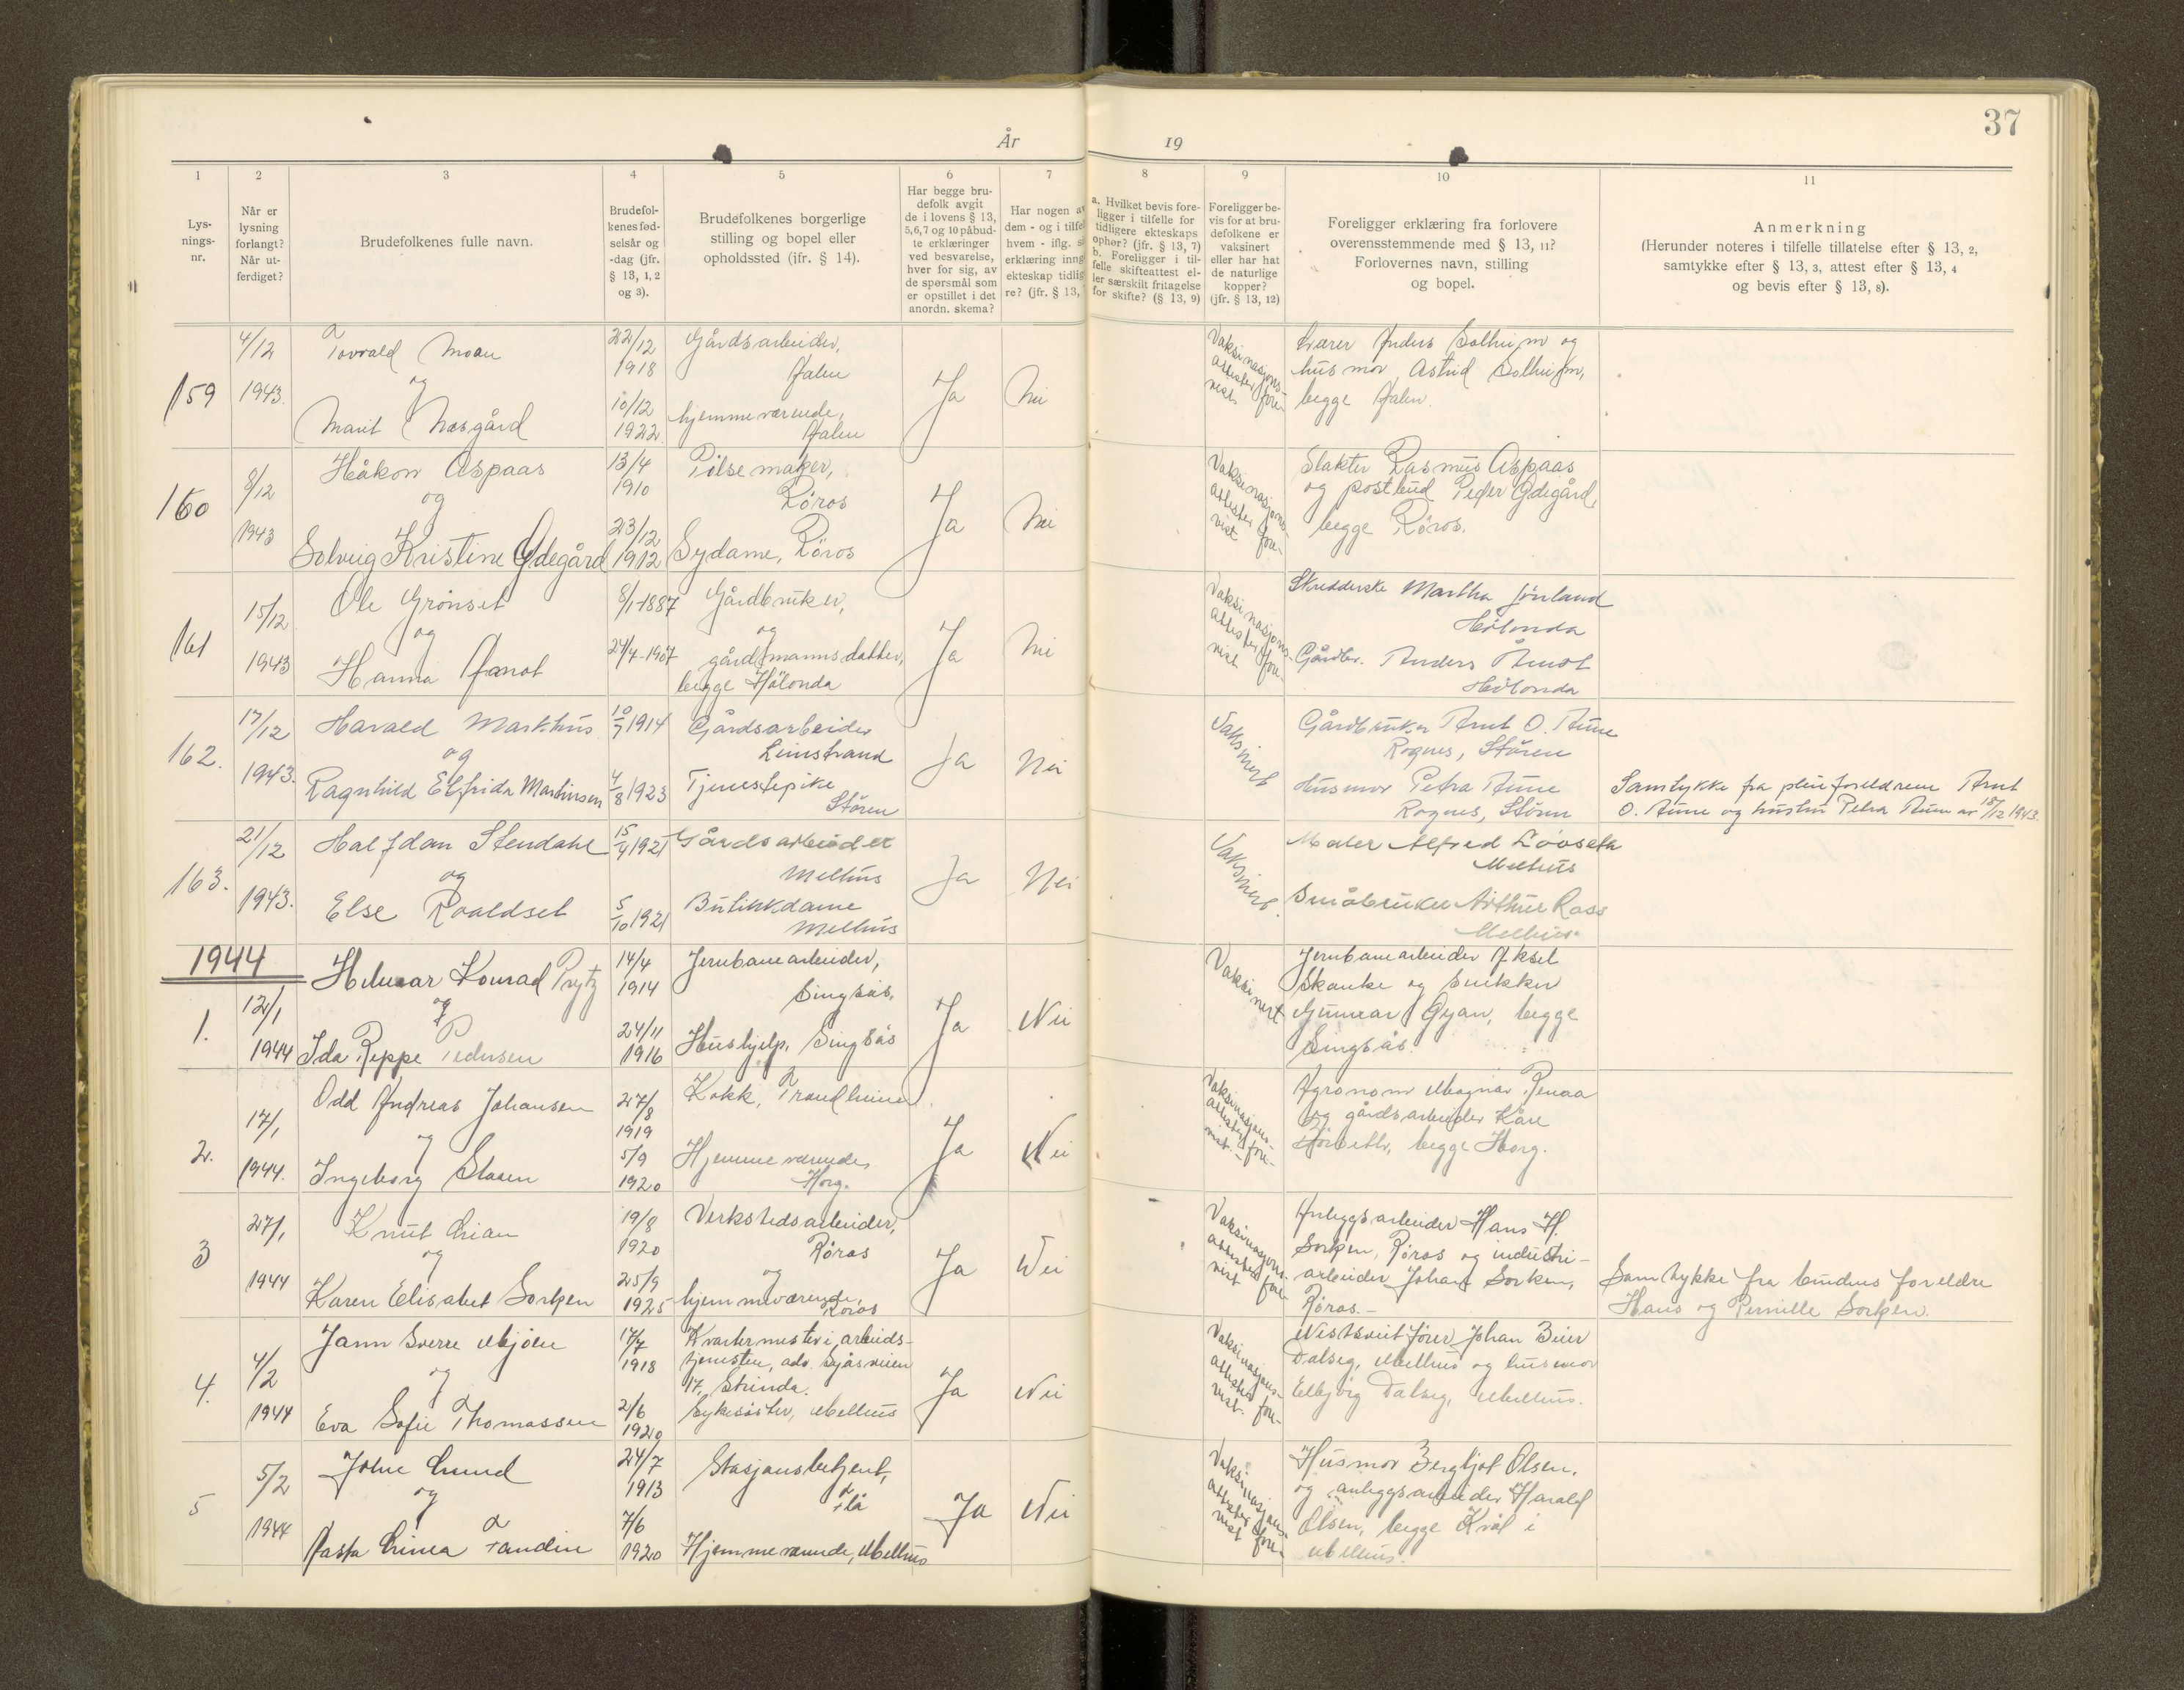 37
År 19
1 2 3 4 5 6 7 8 9 10 11
Lys-
nings-
nr.
Når er
lysning
forlangt?
Når ut-
ferdiget?
Brudefolkenes fulle navn.
Brudefol-
kenes fød-
selsår og
-dag (jfr.
§ 13, 1, 2
og 3).
Brudefolkenes borgerlige
stilling og bopel eller
opholdssted (jfr. § 14).
Har begge bru-
defolk avgit
de i lovens § 13,
5,6,7 og 10 påbud-
te erklæringer
ved besvarelse,
hver for sig, av
de spørsmål som
er opstillet i det
anordn. skema?
Har nogen av
dem - og i tilfel
hvem - iflg. s
erklæring inng
ekteskap tidlig
re? (jfr. § 13,
a. Hvilket bevis fore-
ligger i tilfelle for
tidligere ekteskaps
ophør? (jfr. § 13, 7)
b. Foreligger i til-
felle skifteattest el-
ler særskilt fritagelse
for skifte? (§ 13, 9)
Foreligger be-
vis for at bru-
defolkene er
vaksinert
eller har hat
de naturlige
kopper?
(jfr. § 13, 12)
Foreligger erklæring fra forlovere
overensstemmende med § 13, 11?
Forlovernes navn, stilling
og bopel.
Anmerkning
(Herunder noteres i tilfelle tillatelse efter § 13, 2,
samtykke efter § 13, 3, attest efter § 13, 4
og bevis efter § 13, 8).
159
4/12
1943.
Torvald Moan
og
Marit Næsgård
22/12
1918
10/12
1922
Gårdsarbeider,
Ålen
hjemmeværende,
Ålen
Ja
Nei
Vaksinasjons-
attester fore-
vist.
Lærer Anders Solheim og
husmor Astrid Solheim,
begge Ålen.
160
8/12
1943
Håkon Aspaas
og
Solveig Kristine Ødegård
13/4
1910
23/12
1912
Pølsemaker,
Röros
Sydame, Röros
Ja
Nei
Vaksinasjons-
attester fore-
vist
Slakter Rasmus Aspaas
og postbud Peder Ødegård,
begge Röros.
161
15/12
1943
Ole Grönset
og
Hanna Åmot
8/1-1887
24/4-1907
Gårdbruker,
og
gårdmannsdatter,
begge Hölonda
Ja
Nei
Vaksinasjons-
attester fore-
vist
Skredderske Martha
Hölonda
Gårdbr. Anders Åmot
Hölonda
162.
17/12
1943.
Harald Markhus
og
Ragnhild Elfrida Martinsen
10/7 1914
4/8 1923
Gårdsarbeider
Leinstrand
Tjenestepike
Stören
Ja
Nei
Vaksinert
Gårdbruker Arnt O. Aune
Rognes, Stören
Husmor Petra Aune
Rognes, Stören
Samtykke fra pleieforeldrene Arnt
O. Aune og hustru Petra Aune av 18/12 1943.
163.
21/12
1943.
Halfdan Stendahl
og
Else Roaldset
15/4 1921
5/10 1921
Gårdsarbeider
Melhus
Butikkdame
Melhus
Ja
Nei
Vaksinert.
Maler Alfred Løvseth
Melhus
Småbruker Arthur Ross
Melhus.
1944
1.
12/1
1944
Helmar Konrad Prytz
og
Ida Reppe Pedersen
14/4
1914
24/11
1916
Jernbanearbeider,
Singsås.
Hushjelp, Singsås
Ja
Nei
Vaksinert
Jernbanearbeider Aksel
Skanke og snekker
Gunnar Gyan, begge
Singsås.
2.
17/1
1944.
Odd Andreas Johansen
og
Ingeborg Staven
27/8
1919
5/9
1920
Kokk, Trondheim
Hjemmeværende,
Horg.
Ja
Nei
Vaksinasjons-
attester fore-
vist.
Agronom Magnar Renaa
og gårdsarbeider Kåre
begge Horg.
3
27/1
1944
Knut Lian
og
Karen Elisabet Sorken
19/8
1920
25/9
1925
Verkstedsarbeider,
Röros
og
hjemmeværende,
Röros
Ja
Nei
Vaksinasjons-
attester fore-
vist
Anleggsarbeider Hans H.
Sorken, Röros og industri-
arbeider Johan Sorken,
Röros.-
Samtykke fra brudens foreldre
Hans og Pernille Sorken.
4.
4/2
1944
Jann Sverre Mjöen
og
Eva Sofie Thomassen
17/7
1918
2/6
1920
Kvartermester i arbeids-
tjenesten, adr. Sjåsveien
17, Strinda.
Sykesöster, Melhus
Ja
Nei
Vaksinasjons-
attester fore-
vist.
Johan Beier
Dalseg, Melhus og husmor
Eldbjörg Dalseg, Melhus.
5
5/2
1944
John Lund
og
Aasta Linea Sandin
24/7
1913
7/6
1920
Stasjonsbetjent,
Flå
Hjemmeværende, Melhus
Ja
Nei
Vaksinasjons-
attester fore-
vist
Husmor Bergljot Olsen,
og anleggsarbeider Harald
Olsen, begge Kvål i
Melhus.